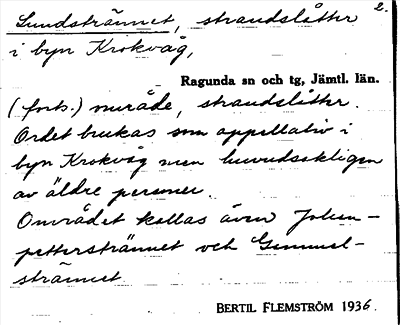 Sundstrännet, strandslåtter 2.
i byn Krokvåg,
Ragunda sn och tg, Jämtl. län.
(forts.) område, strandslåtter.
Ordet brukas som appellativ i
byn Krokvåg men huvudsakligen
av äldre personer.
Området kallas även Johan-
petterstrännet och Gammel-
strännet
BERTIL FLEMSTRÖM 1936.